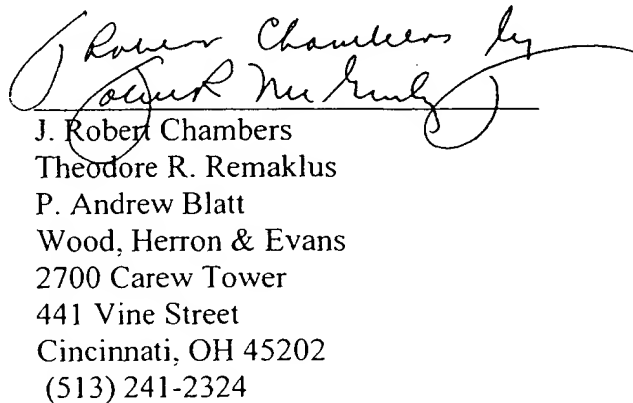 J Robert Chambers by
J. Robert Chambers
Theodore R. Remaklus
P. Andrew Blatt
Wood, Herron & Evans
2700 Carew Tower
441 Vine Street
Cincinnati, OH 45202
(513) 241-2324